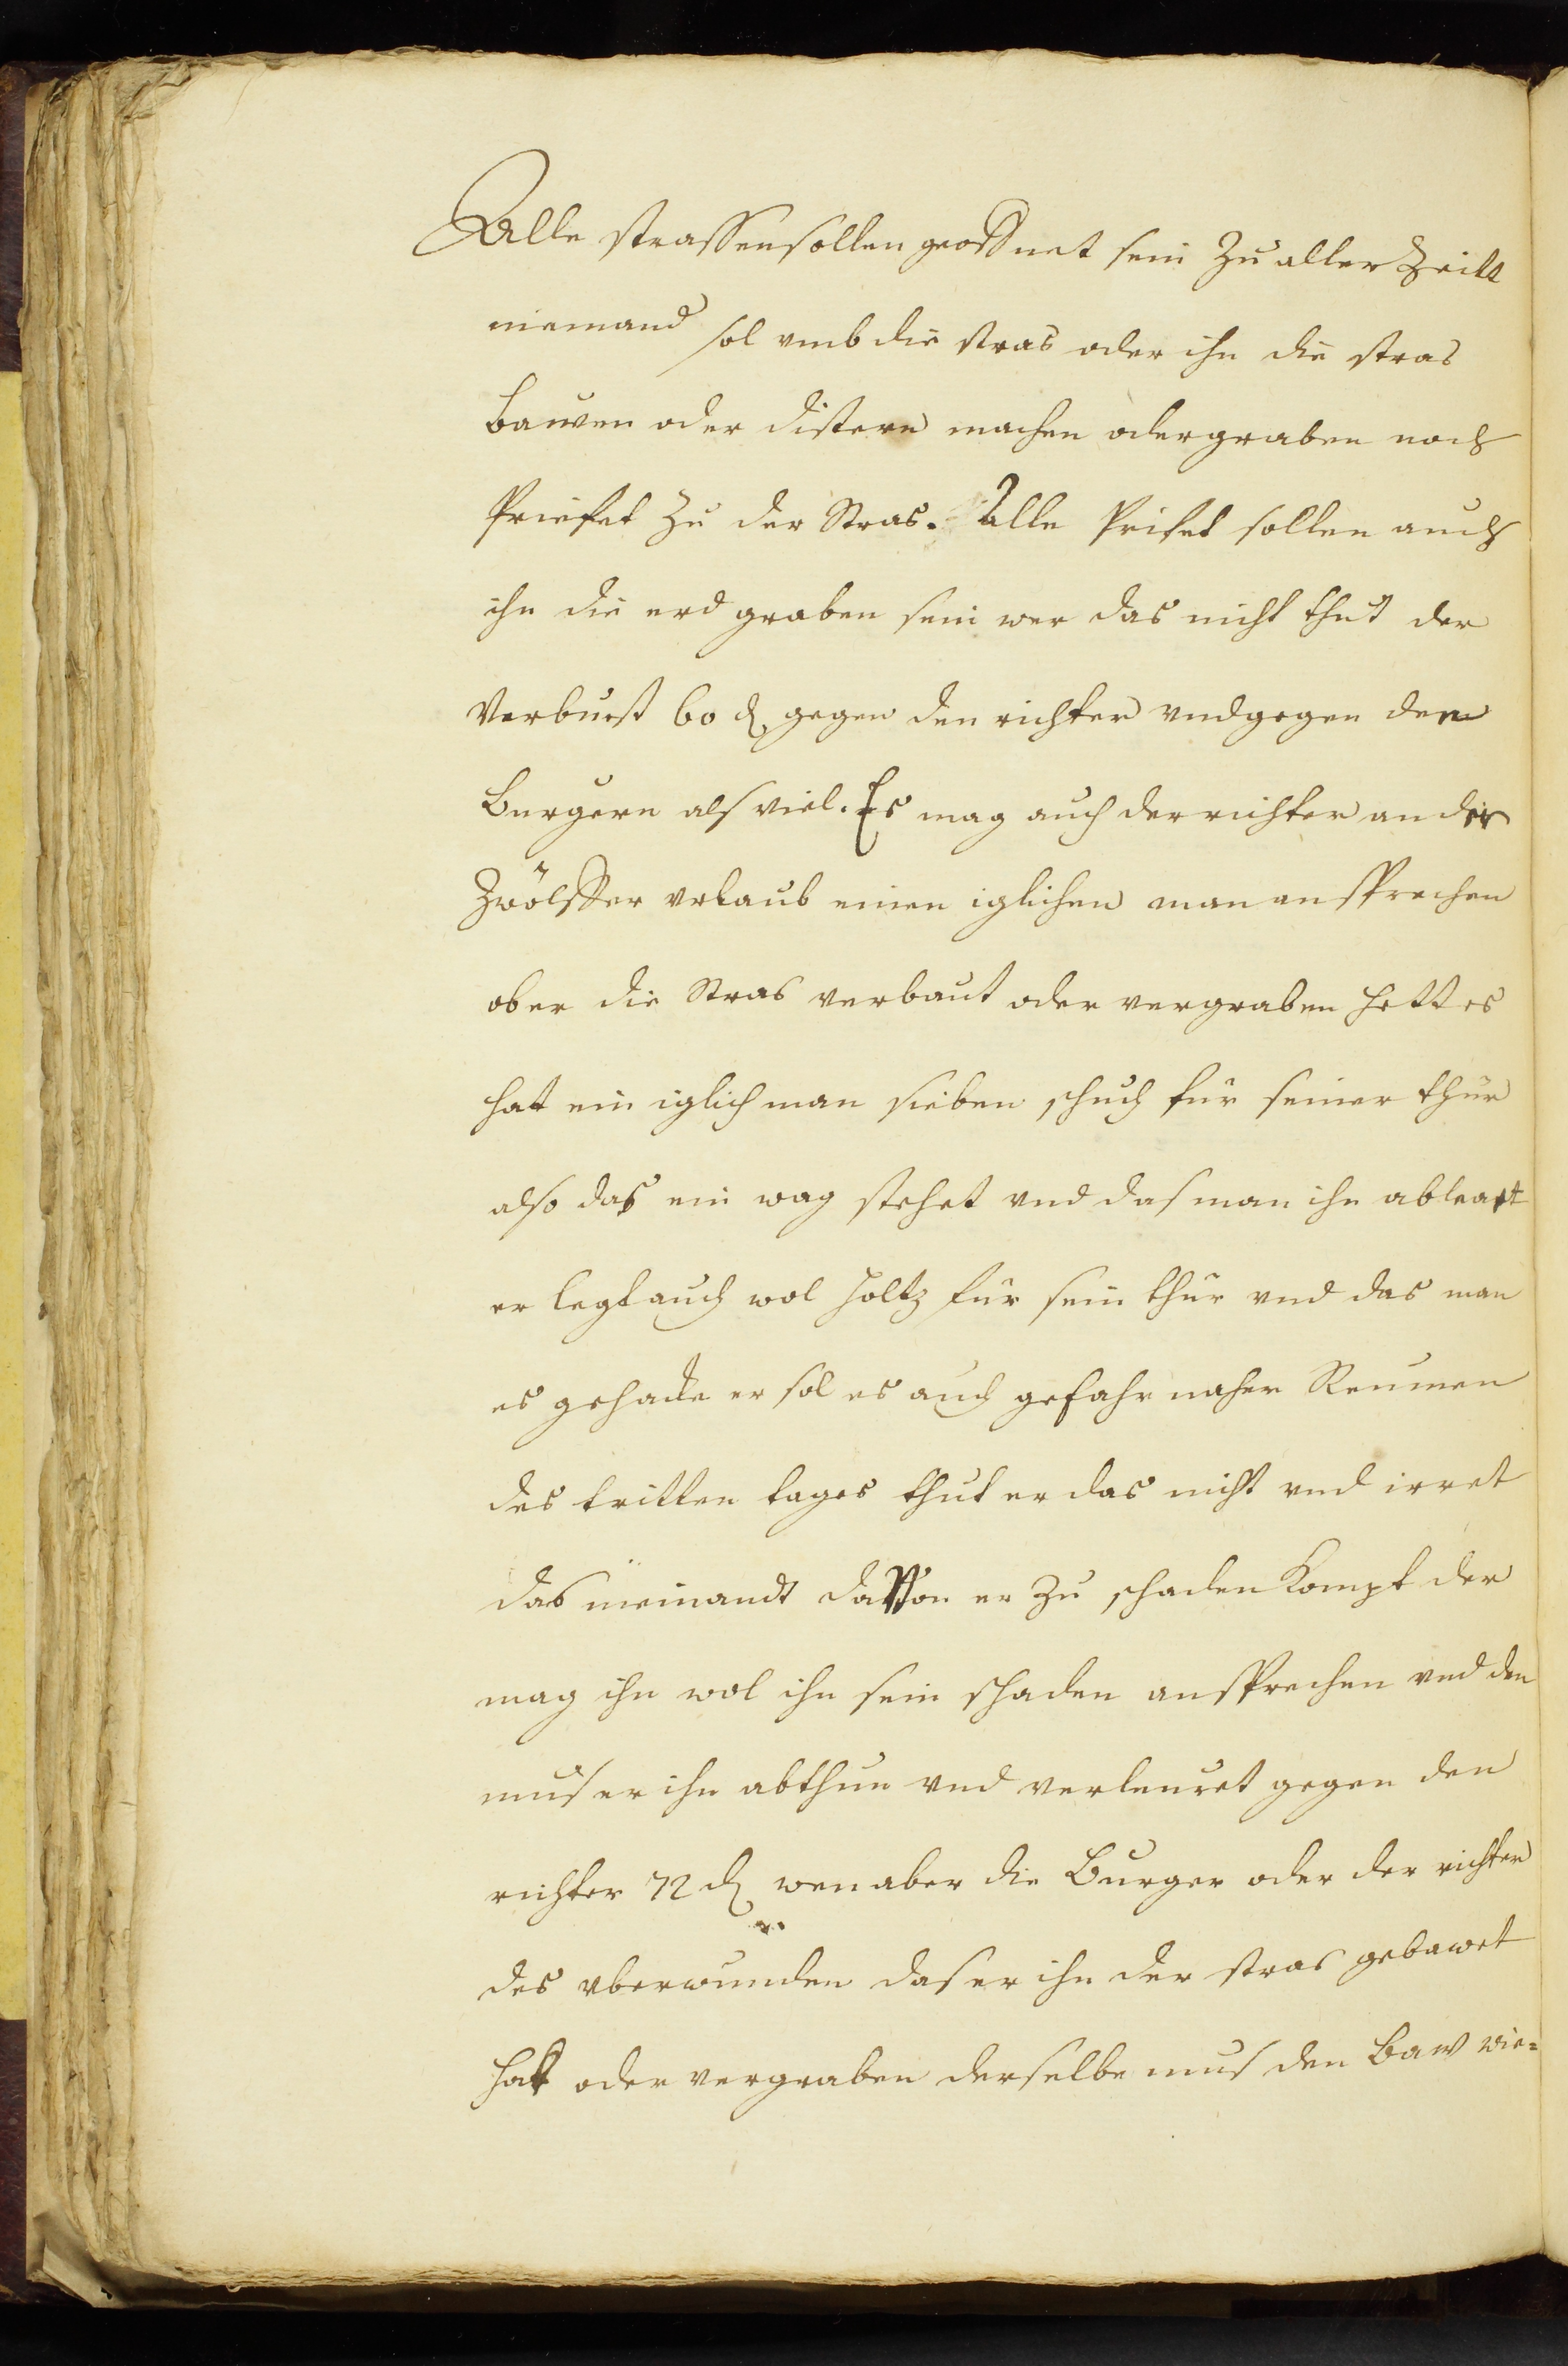 Alle strassen sollen geoffnet sein Zu aller Zeitt
niemand sol vmb die stras oder ihn die stras
bawen oder distern machen oder graben noch
Priefet Zu der Stras. Alle Prifet sollen auch
ihn die erd graben sein wer das nicht thut der
Verbust 60 d. gegen den richter vnd gegen den
Burgern als viel. Es mag auch der richter an der
Zwölffer vrlaub einen iglichen man ansprechen
ob er die Stras verbaut oder vergraben hett es
hatt ein iglich man sieben schuch für seiner thür
also das ein wag stehet vnd das man ihn ableatt
er legt auch wol holtz für sein thür vnd das man
es gehacke er sol es auch gefahr naher Reumen
des tritten tages thut er das nicht vnd irret
das niemandt davon er Zu schaden kompt der
mag ihn wol ihn sein schaden ansprechen vnd den
mus er ihn abthun vnd verleuret gegen den
richter 72 d. wen aber die Burger oder der richter
des vberwunden das er ihn der stras gebawet
hatt oder vergraben derselbe mus den Baw wie=